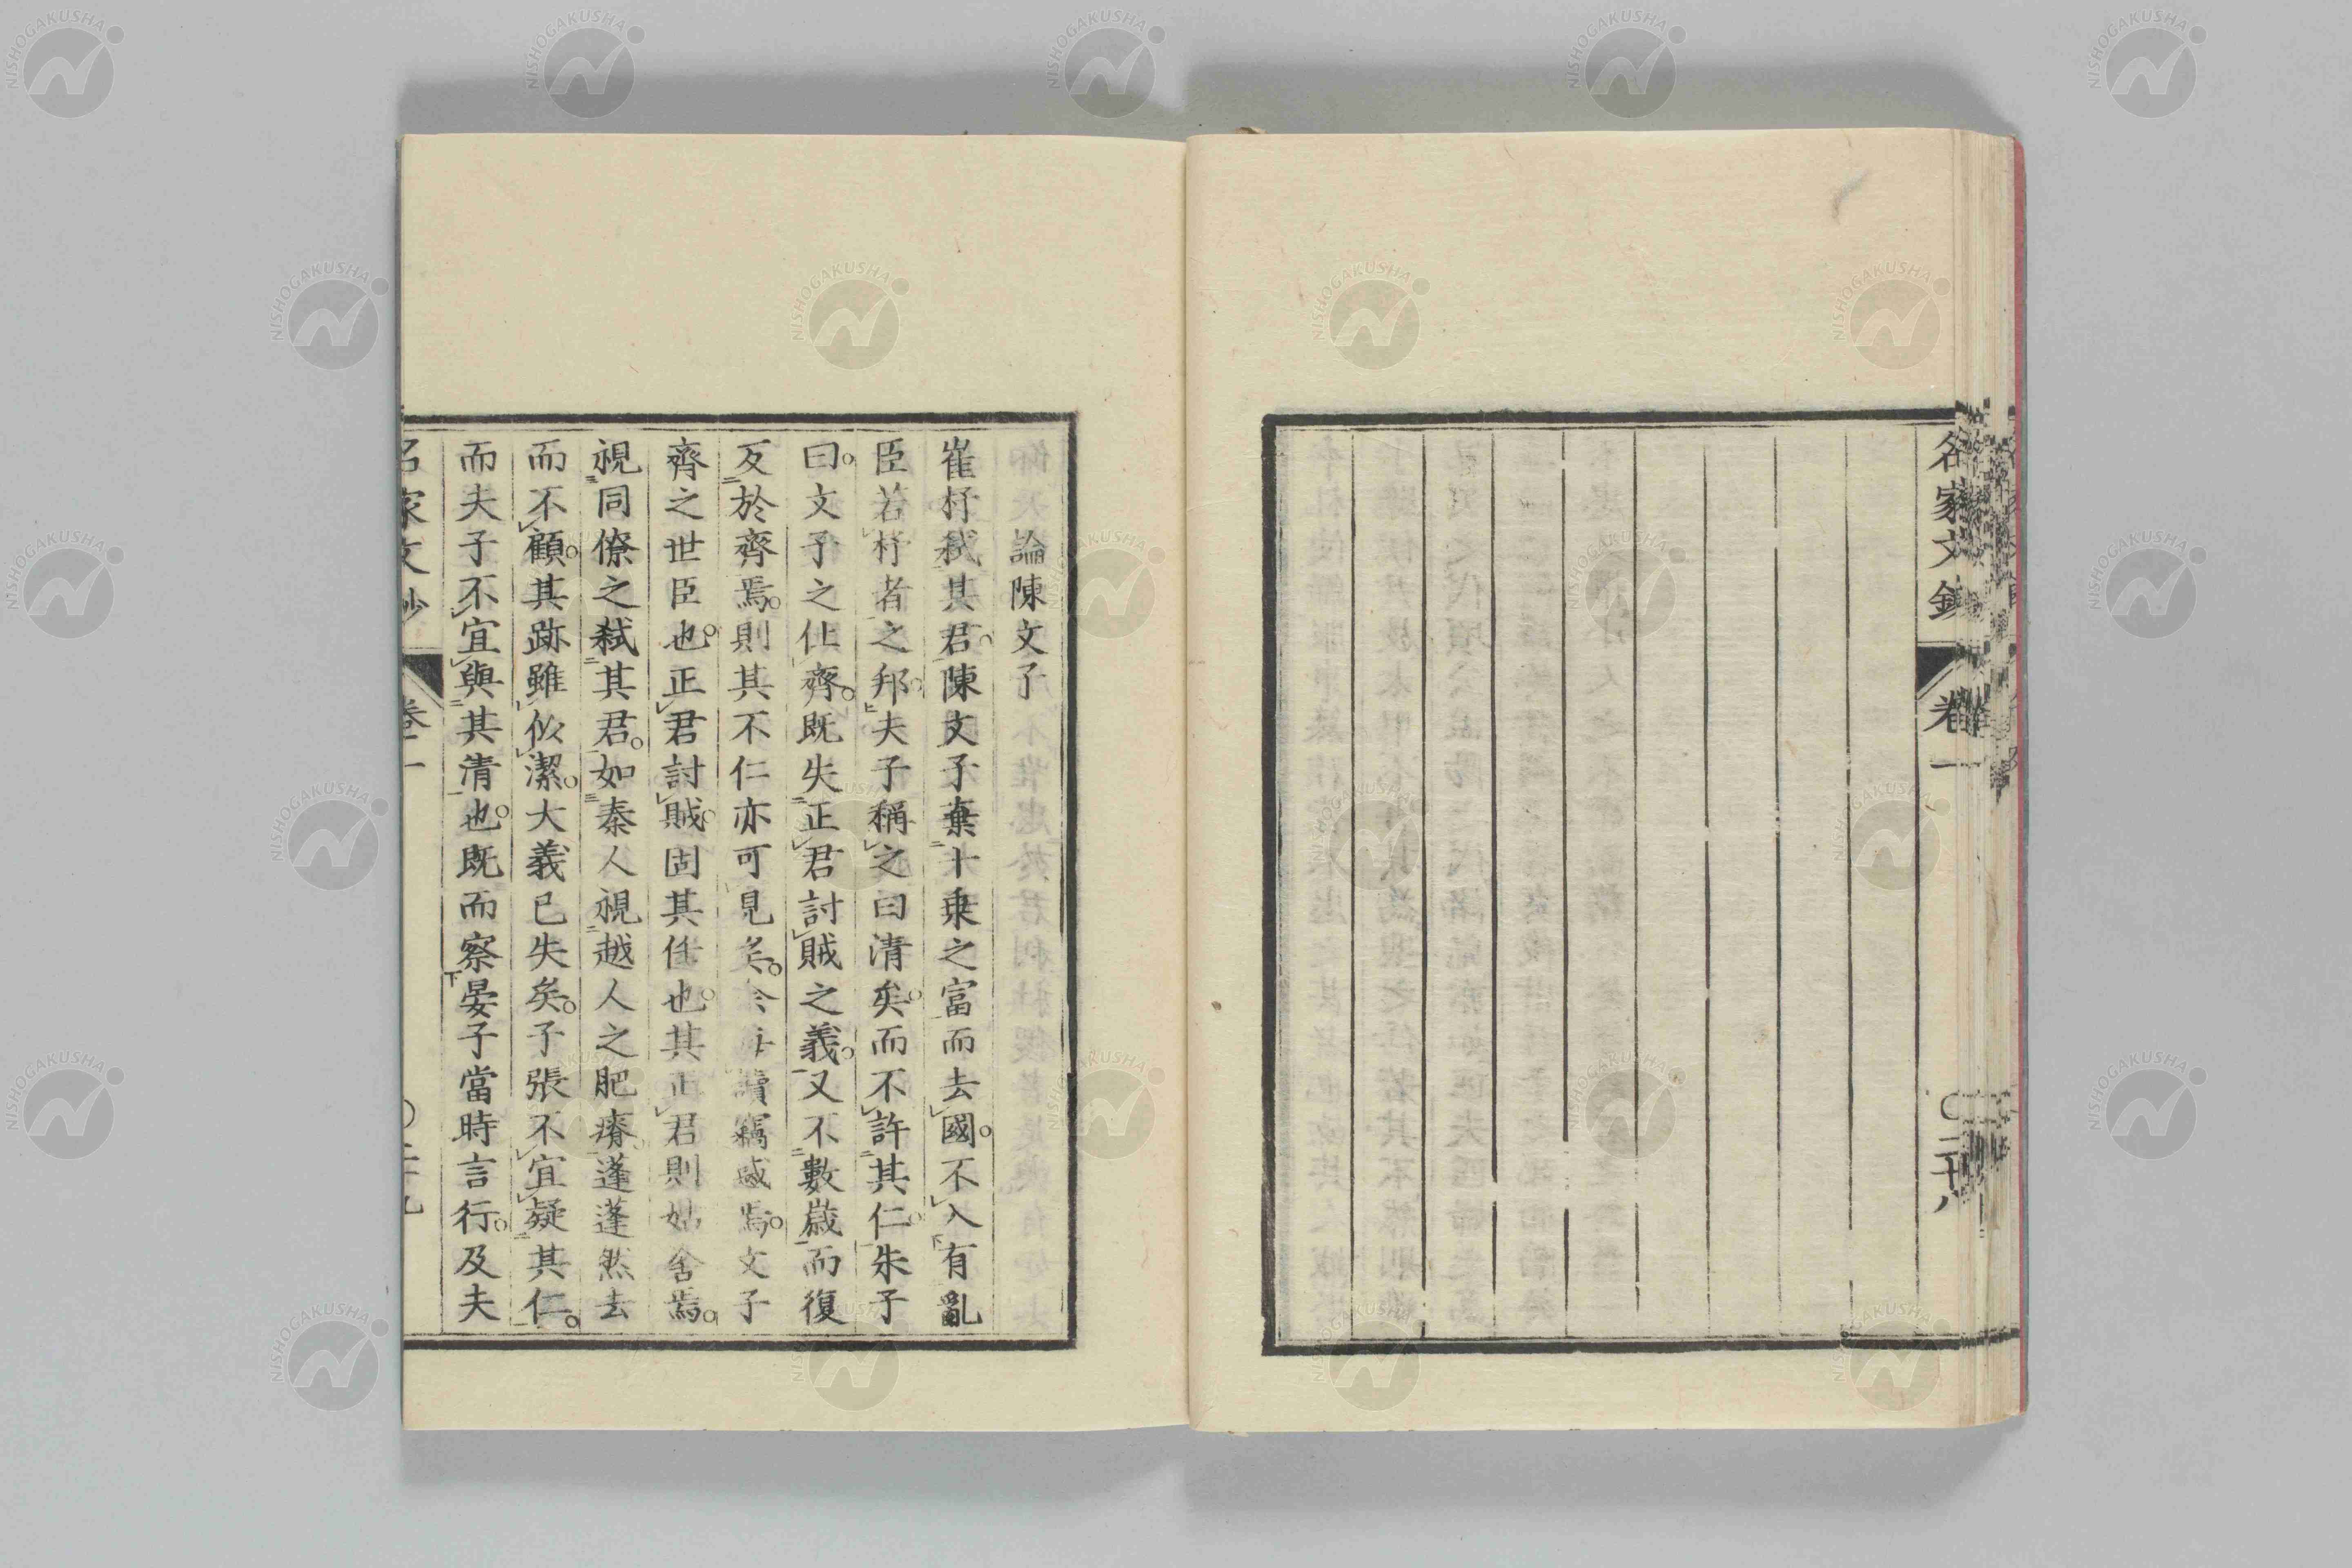 名家文鈔 卷一 〇二十八
論陳文子
崔杼弑其君陳文子棄十乗之富而去國不入有亂
臣若杼者之邦夫子稱之曰清矣而不許其仁朱子
曰文子之仕齊既失正君討賊之義又不數歲而復
反於齊焉則其不仁亦可見矣今每讀竊惑焉文子
齊之世臣也正君討賊固其任也其正君則姑舍焉
視同僚之弑其君如秦人視越人之肥瘠蓬蓬然去
而不顧其跡雖似潔大義已失矣子張不宜疑其仁
而夫子不宜與其清也既而察晏子當時言行及夫
名家文鈔 卷一 〇二十九
NISHOGAKUSHA